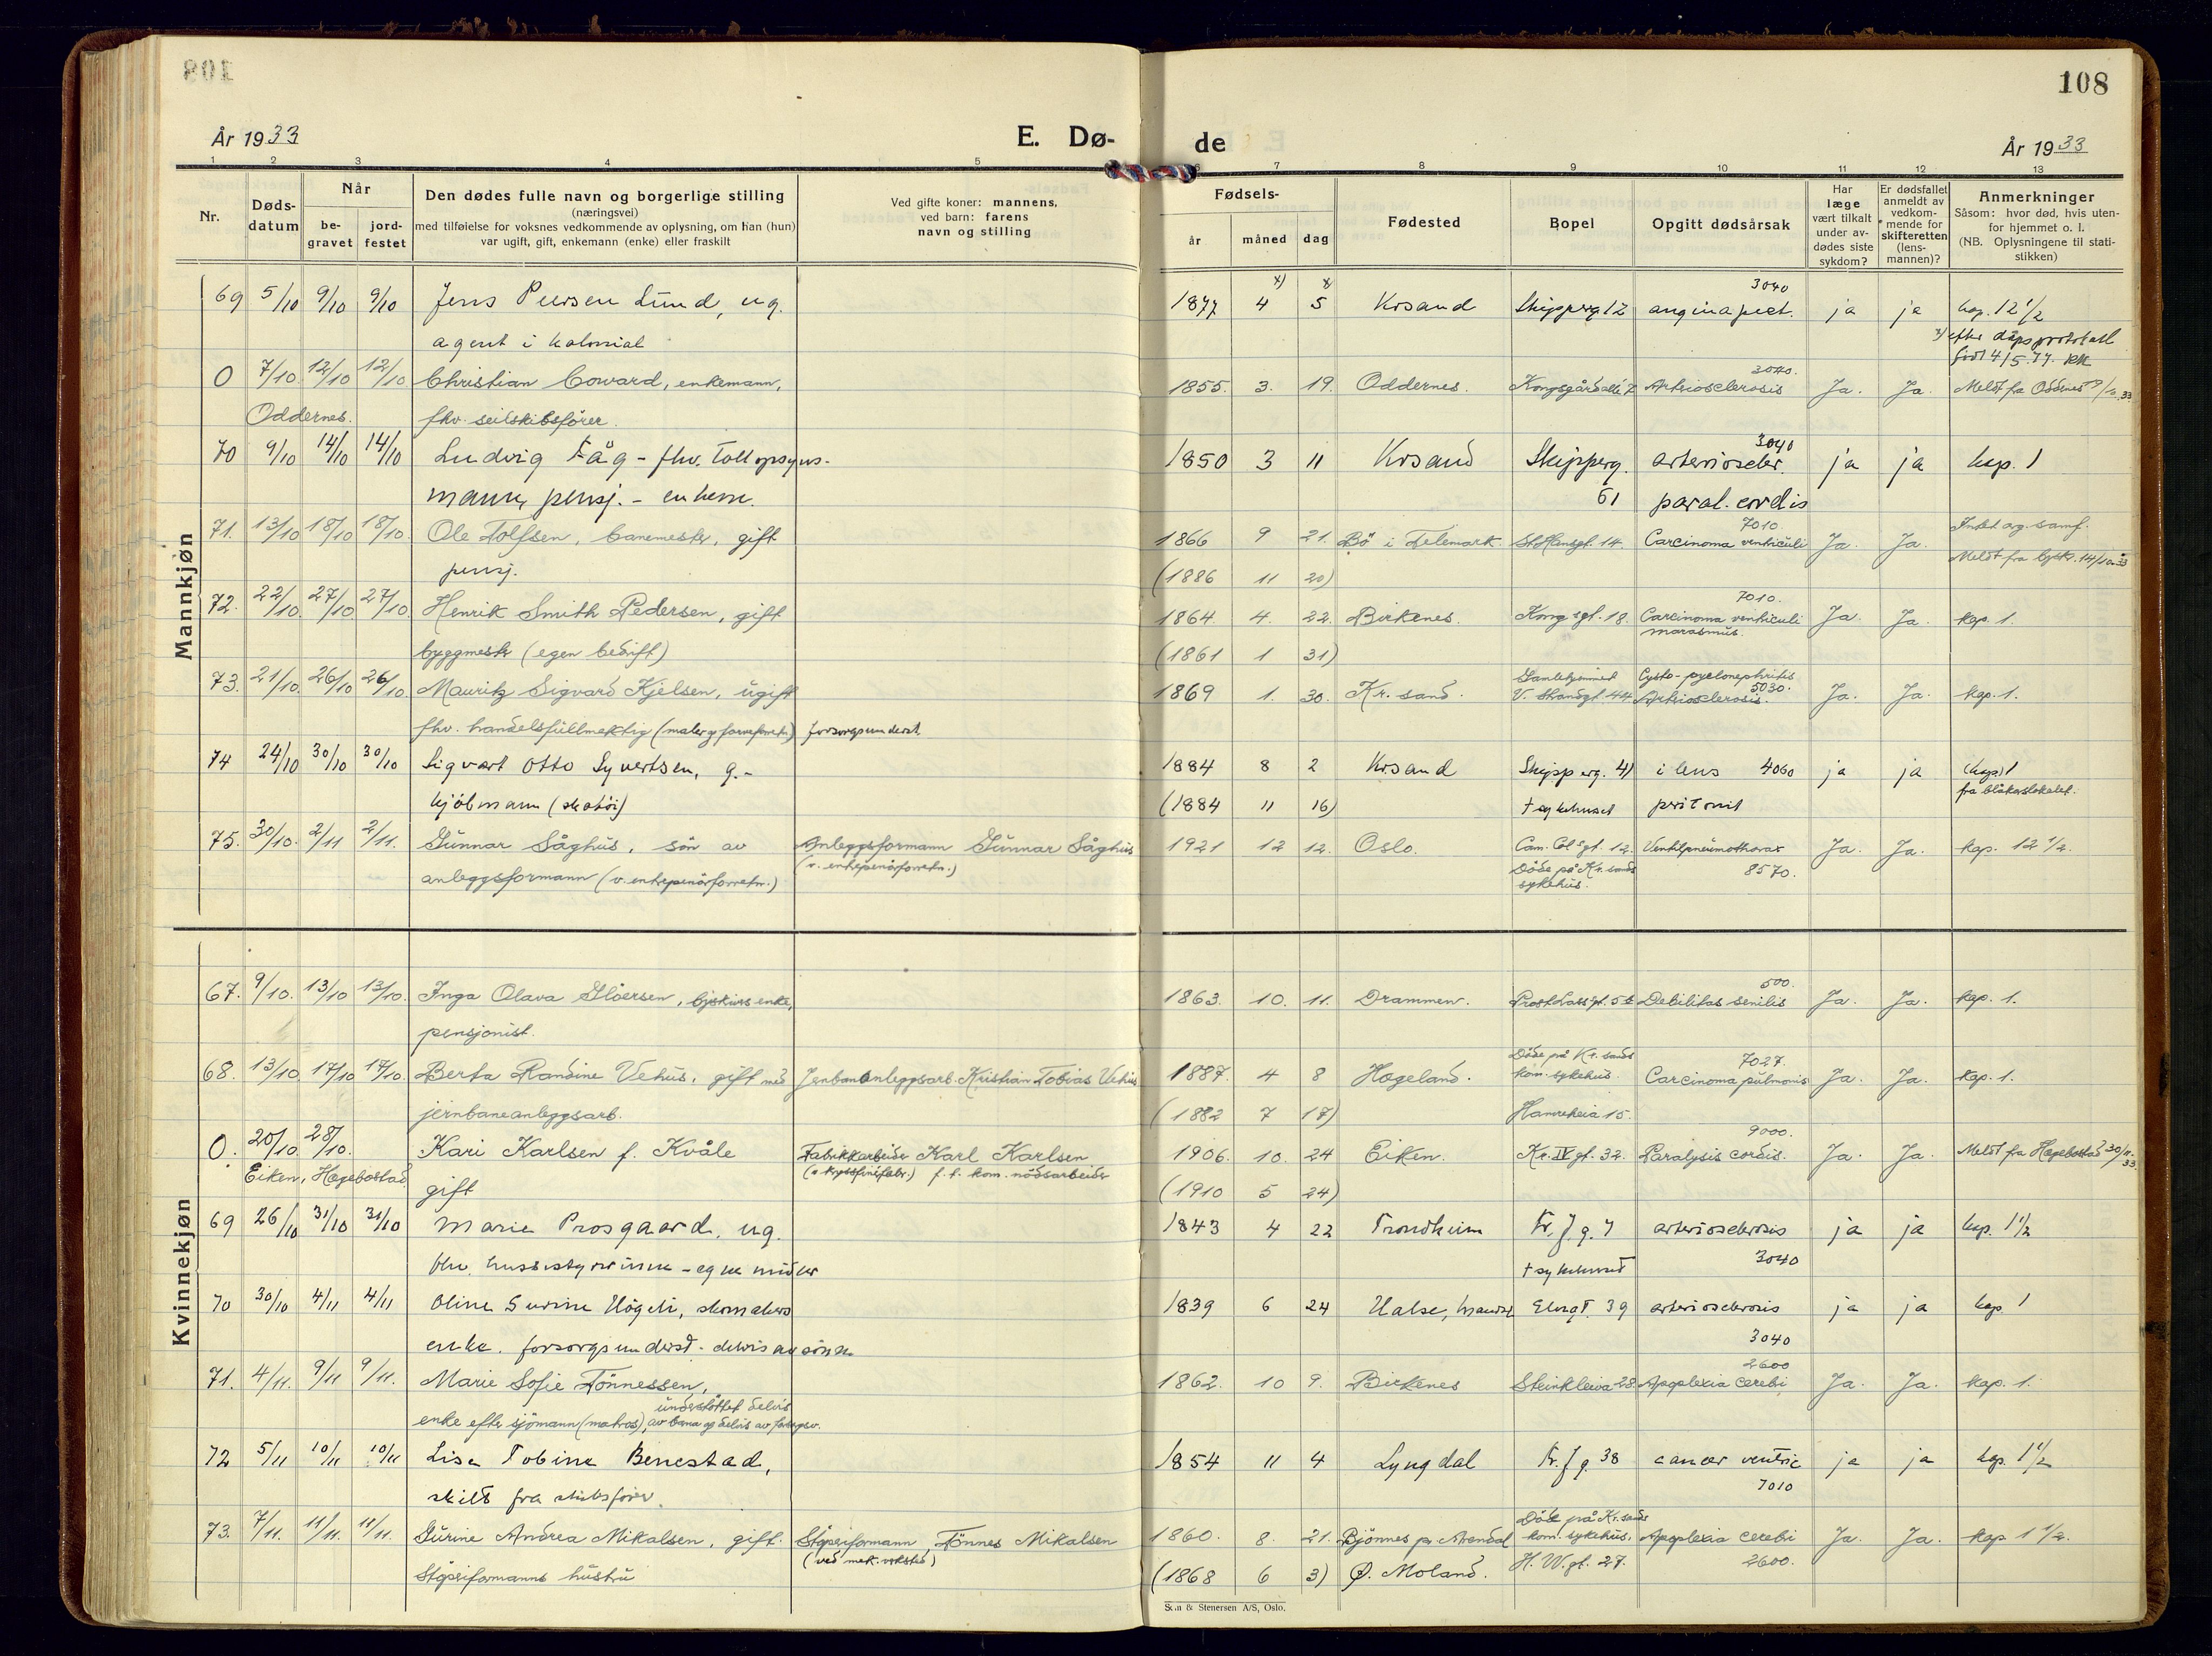 108
År 1933
E. Dø-
de
År 1933
1 2 3 4 5 6 7 8 9 10 11 12 13
Nr.
Døds-
datum
Når
be-
gravet
jord-
festet
Den dødes fulle navn og borgerlige stilling
(næringsvei)
med tilføielse for voksnes vedkommende av oplysning, om han (hun)
var ugift, gift, enkemann (enke) eller fraskilt
Ved gifte koner: mannens,
ved barn: farens
navn og stilling
Fødsels-
år måned dag
Fødested
Bopel
Opgitt dødsårsak
Har
læge
vært tilkalt
under av-
dødes siste
sykdom?
Er dødsfallet
anmeldt av
vedkom-
mende for
skifteretten
(lens-
mannen)?
Anmerkninger
Såsom: hvor død, hvis uten-
for hjemmet o. l.
(NB. Oplysningene til stati-
stikken)
Mannkjøn
x) x) 3040
69 5/10 9/10 9/10 Jens Peersen Lund, ug. 1877 4 5 Krsand Skipperg. 12 angina pect. ja ja kap. 12 1/2
agent i kolonial x) efter dåpsprotokoll
født 4/5.77. RK
3040.
0 7/10 12/10 12/10 Christian Coward, enkemann, 1855. 3. 19. Oddernes. Kongsgårdallé Arteriosclerosis Ja. Ja. Meldt fra Oddernes
Oddernes. fhv. seilskibsfører.
3040
70 9/10 14/10 14/10 Ludvig Fåg - fhv. Tollopsyns- 1850 3 11 Krsand Skipperg. arterioscler. ja ja kap. 1
mann, pensj. - enkem. 61 paral. cordis
7010 Intet org. samf.
71. 13/10 18/10 18/10. Ole Tolfsen, banemester, gift 1866 9 21. Bö i Telemark. St. Hansgt. 14. Carcinoma ventriculi Ja. Ja. Meldt fra bysk. 14/10.33
pensj. (1886 11 20)
7010.
72. 22/10. 27/10 27/10. Henrik Smith Pedersen, gift 1864 4. 22. Birkenes. Kongsgt. 18. Carcinoma ventriculi Ja. Ja. kap. 1.
marasmus.
byggmester (egen bedrift) (1861 1 31)
Gamlehjemmet Cysto-pyelonephritis
73. 21/10. 26/10 26/10. Mauritz Sigvard Kjelsen, ugift 1869 1. 30. Kr. sand. V. Strandgt. 44. Arteriosclerosis. 5030. Ja. Ja. kap. 1.
fhv. handelsfullmektig forsorgsunderst.
74 24/10 30/10 30/10 Sigvart Otto Syvertsen, g.- 1884 8 2 Krsand Skipperg. 41 ileus 4060 ja ja (kap) 1
kjöbmann (skotöi) (1884 11 16) † sykehuset peritonit fra blåkorslokalet.
75. 30/10. 2/11 2/11. Gunnar Såghus, sön av Anleggsformann Gunnar Såghus 1921 12 12. Oslo. Cam. Col.sgt. 12. Ventilpneumothorax Ja. Ja. kap. 12 1/2.
anleggsformann (v. entrepenörforretn.) (v. entrepenörforretn.) Döde på Kr. sands 8570.
sykehus.
Kvinnekjøn
500.
67. 9/10. 13/10 13/10. Inga Olava Gloersen, enke, 1863. 10. 11. Drammen. Debilitas senilis Ja. Ja. kap. 1.
pensjonist.
Döde på Kr. sands 7027.
68. 13/10 17/10 17/10. Berta Randine Vehus, gift med Jernbaneanleggsarb. Kristian Tobias Vehus 1887. 4 8 Hægeland. kom. sykehus. Carcinoma pulmonis Ja. Ja. kap. 1.
jernbaneanleggsarb. (1882 7 17) Hamreheia 15.
9000.
0. 20/10. 28/10. Kari Karlsen f. Kvåle Fabrikkarbeider Karl Karlsen 1906. 10. 24 Eiken. Kr. IV gt. 32. Paralysis cordis. Ja. Ja. Meldt fra Hægebostad 30/11.33.
Eiken, Hægebostad. gift f. t. kom. nödsarbeider (1910 5 24)
69 26/10 31/10 31/10 Marie Prosgaard, ug. 1843 4 22 Trondheim Fr. f. g. 7 arteriosclerosis ja ja kap. 1 1/2
fhv. husbestyrerinne - egne midler † sykehuset 3040
70 30/10 4/11 4/11 Oline Surine Högeli, skomakers 1839 6 24 Halse, Mandal Elvegt. 39 arteriosclerosis ja ja kap. 1
enke. forsorgsunderst. - delvis av sönn 3040
2600
71. 4/11. 9/11 9/11. Marie Sofie Tönnessen, 1862. 10 9. Birkenes Steinkleiva 28. Apoplexia cerebi Ja. Ja. kap. 1.
understöttet delvis
enke efter sjömann (matros), av barna og delvis av forsorgsv.
72 5/11 10/11 10/11 Lise Tobine Benestad, 1854 11 4 Lyngdal Fr. f. g. 38 cancer ventric ja ja kap. 1 1/2
skilt fra skibsförer. 7010
Döde på Kr. sands
73. 7/11. 11/11. 11/11. Gurine Andrea Mikalsen, gift. Støperiformann Tönnes Mikalsen 1860. 8. 21. Bjönnes pr Arendal kom. sykehus. Apoplexia cerebi Ja. Ja. kap 1 1/2.
Støperiformanns hustru (ved mek. verksted) (1868 6 3) Ø. Moland. H. W. gt. 27. 2600.
& Stenersen A/S, Oslo.